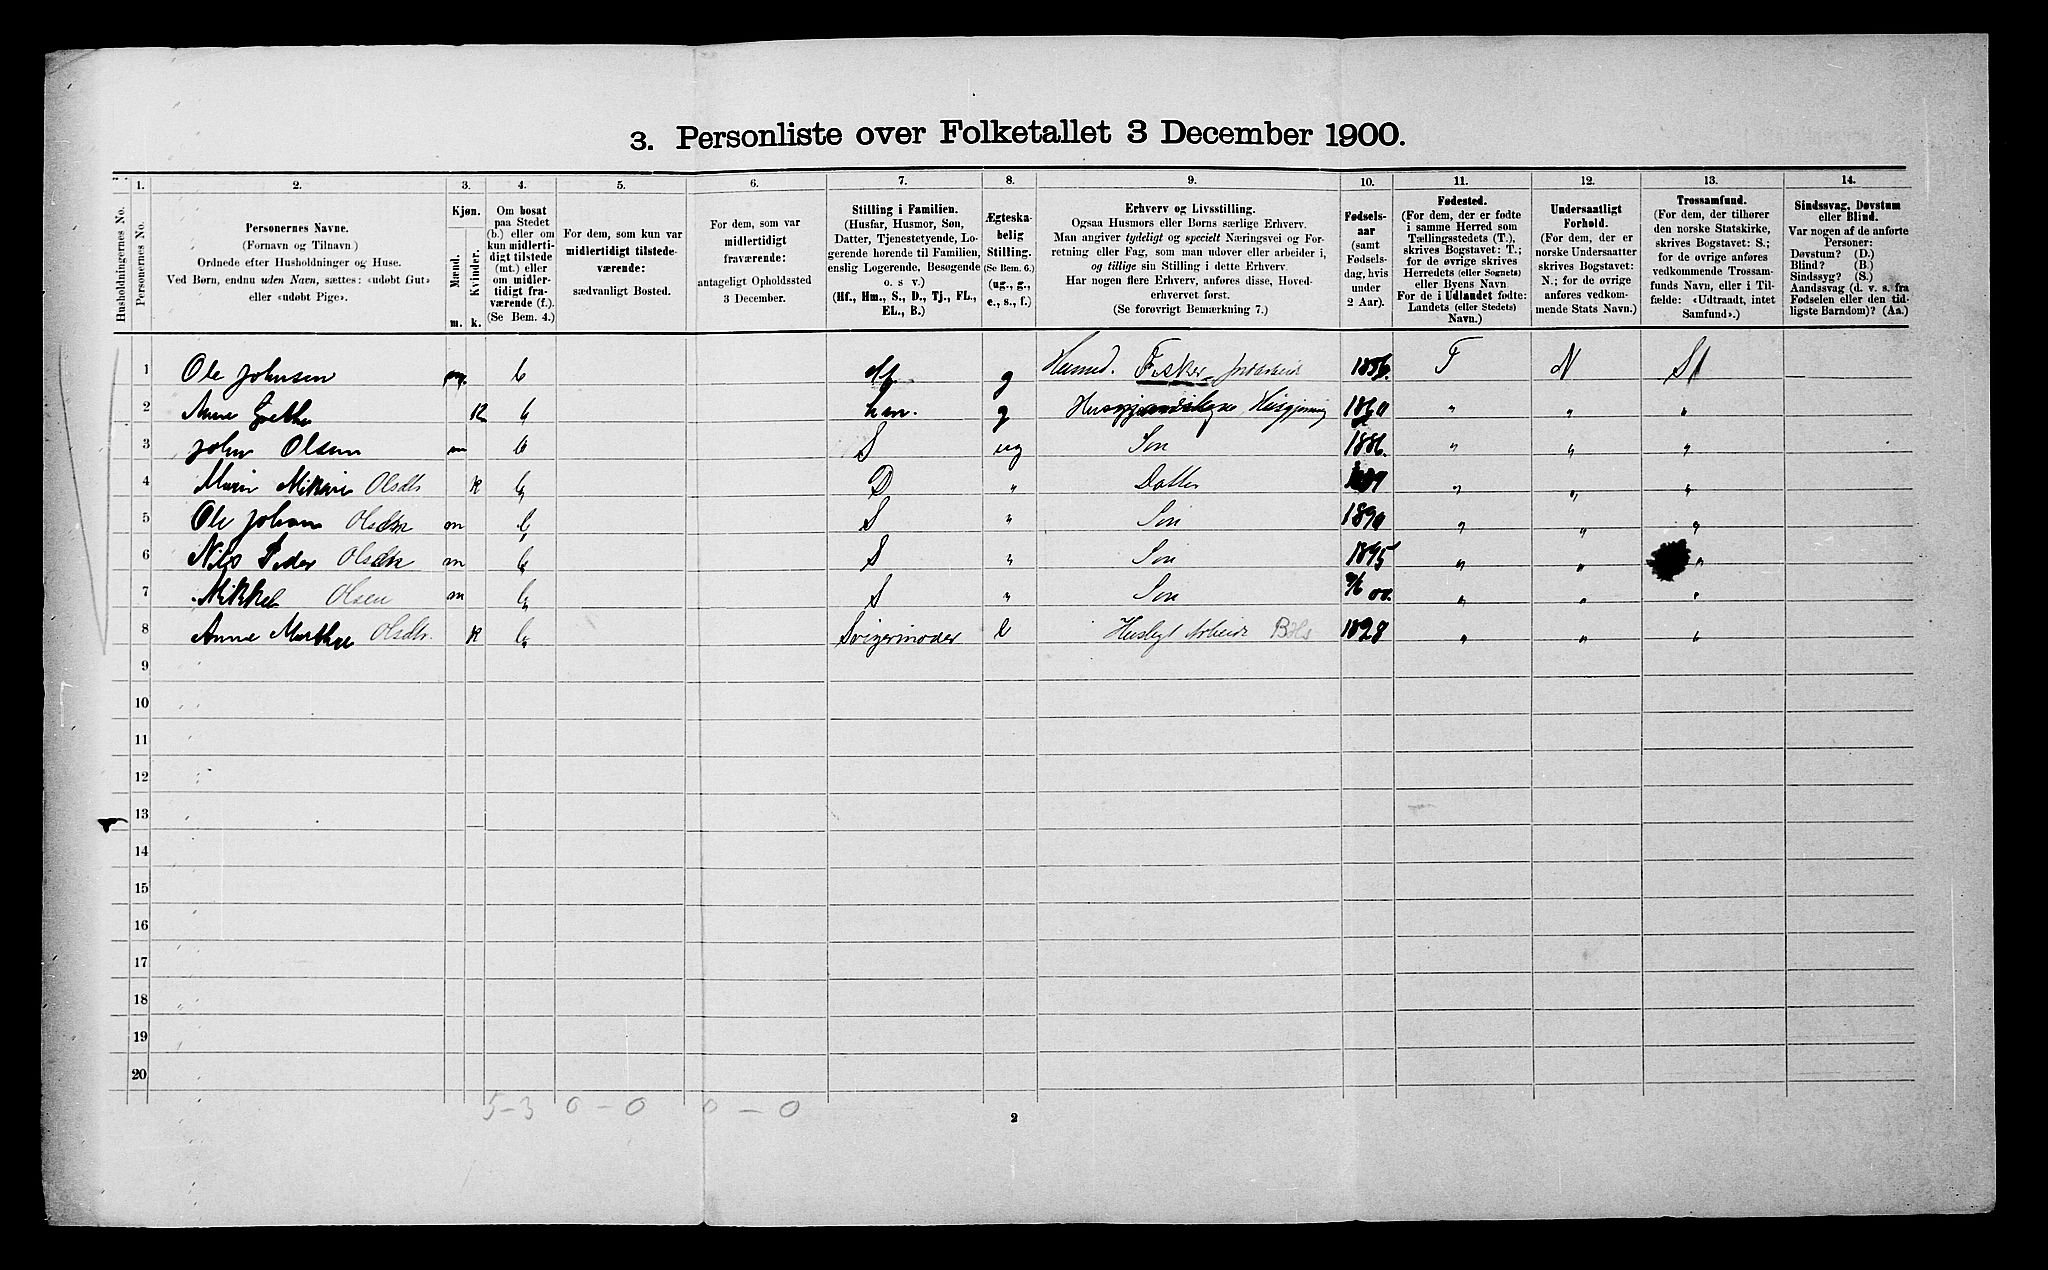 3. Personliste over Folketallet 3 December 1900.
Husholdningernes No.
1. Personernes No.
2. Personernes Navne. (Fornavn og Tilnavn) Ordnede efter Husholdninger og Huse. Ved Børn, endnu uden Navn, sættes: «udøbt Gut» eller «udøbt Pige».
3. Kjøn. Mænd. Kvinder. m. k.
4. Om bosat paa Stedet (b.) eller om kun midlertidigt tilstede (mt.) eller om midlertidigt fraværende (f.). (Se Bem. 4.)
5. For dem, som kun var midlertidigt tilstedeværende: sædvanligt Bosted.
6. For dem, som var midlertidigt fraværende: antageligt Opholdssted 3 December.
7. Stilling i Familien. (Husfar, Husmor, Søn, Datter, Tjenestetyende, Logerende hørende til Familien, enslig Logerende, Besøgende o. s. v.) (Hf., Hm., S., D., Tj., FL., EL., B.)
8. Ægteskabelig Stilling. (Se Bem. 6.) (ug., g., e., s., f.)
9. Erhverv og Livsstilling. Ogsaa Husmors eller Børns særlige Erhverv. Man angiver tydeligt og specielt Næringsvei og Forretning eller Fag, som man udøver eller arbeider i, og tillige sin Stilling i dette Erhverv. Har nogen flere Erhverv, anføres disse, Hovederhvervet først. (Se forøvrigt Bemærkning 7.)
10. Fødselsaar (samt Fødselsdag, hvis under 2 Aar).
11. Fødested. (For dem, der er fødte i samme Herred som Tællingsstedets (T.), skrives Bogstavet: T.; for de øvrige skrives Herredets (eller Sognets) eller Byens Navn. For de i Udlandet fødte: Landets (eller Stedets) Navn.)
12. Undersaatligt Forhold. (For dem, der er norske Undersaatter skrives Bogstavet: N.; for de øvrige anføres vedkommende Stats Navn.)
13. Trossamfund. (For dem, der tilhører den norske Statskirke, skrives Bogstavet: S.; for de øvrige anføres vedkommende Trossamfunds Navn, eller i Tilfælde: «Udtraadt, intet Samfund».)
14. Sindssvag, Døvstum eller Blind. Var nogen af de anførte Personer: Døvstum? (D.) Blind? (B.) Sindssyg? (S.) Aandssvag (d. v. s. fra Fødselen eller den tidligste Barndom)? (Aa.)
1 Ole Johnsen m. b Hf g Husmd. Fisker 1856. T N S
2 Anne Grethe K b hm. g Husgjerning 1860 " " "
3 John Olsen m b S ug Søn 1886. " " "
4 Marie Mikkine Olsdtr K b D " Datter " " "
5 Ole Johan Olsen m b S " Søn 1890 " " "
6 Nils Peder Olsen m b S " Søn 1895 " " "
7 Mikkel Olsen m b S " Søn 00. " " "
8 Anne Marthe Olsdtr. K b Svigermoder e Husligt Arbeide 1828 " " "
9
10
11
12
13
14
15
16
17
18
19
20
5-3 0-0 0-0
2